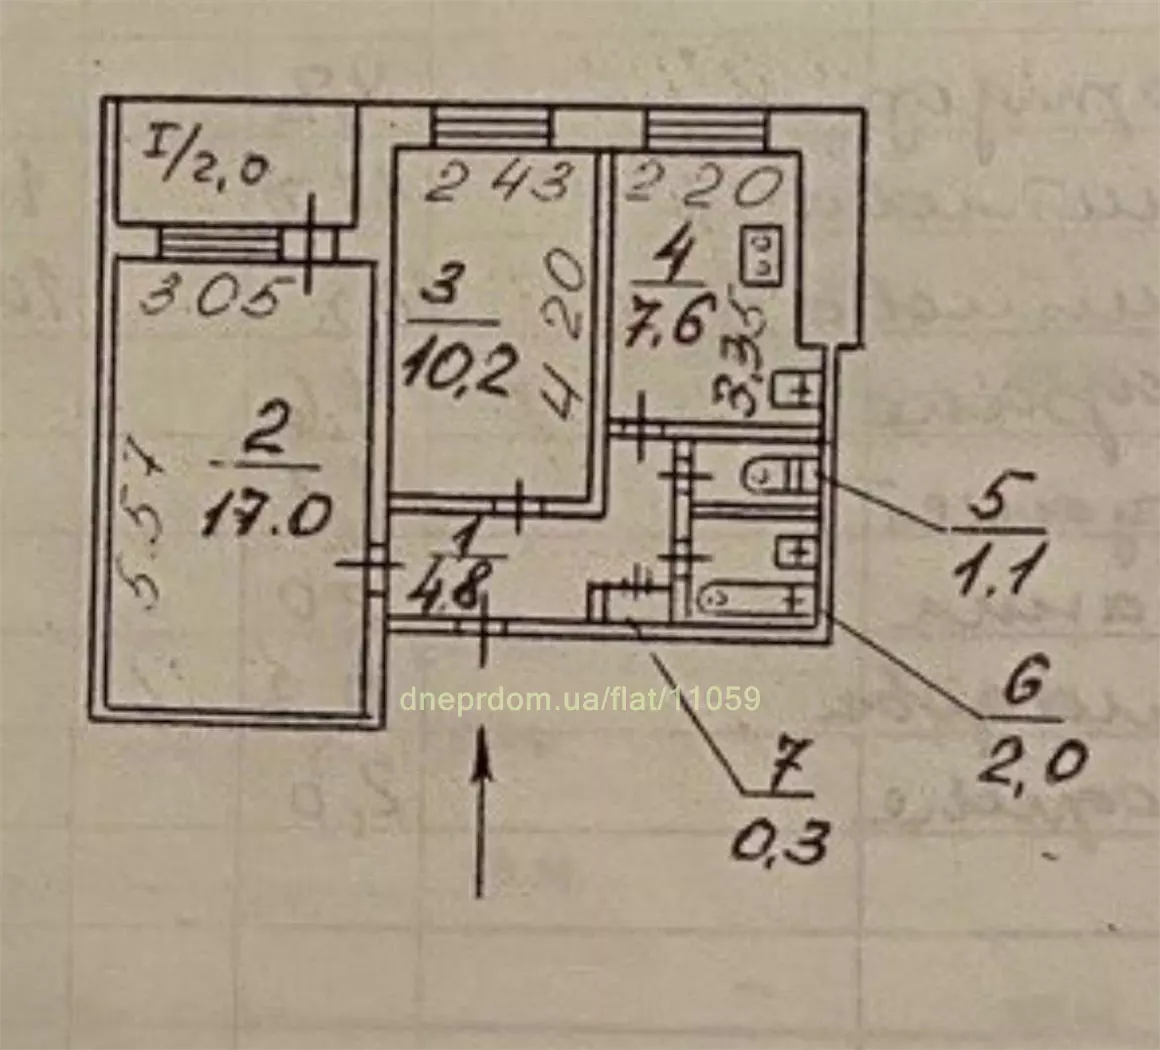 I/2,0
2 43
2 20
3.05
3
10,2
4 20
4
7,6
3,35
2
17.0
5.57
1
4.8
5
1.1
6
2,0
7
0,3
dneprdom.ua/flat/11059